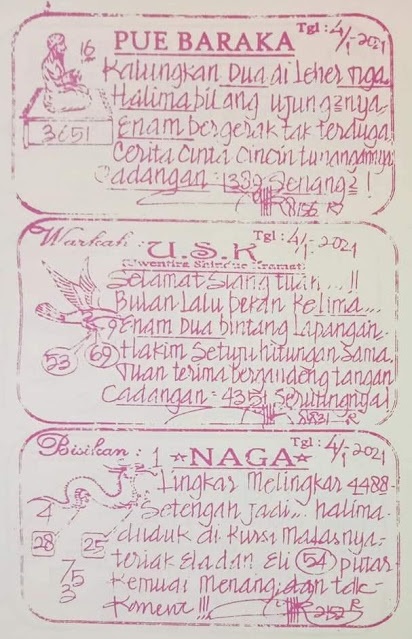 PUE BARAKA
Tgl : 4/1-2021
16
3651
Kalungkan Dua di Leher nga
Halima bilang ujungznya
Enam bergerak tak terduga
Cerita Cinta Cincin tunangannya
Cadangan : 1389 Senangz !
Warkah : U.S.K
Tgl : 4/1-2021
Selamat Siang tuan...!!
Bulan Lalu pekan kelima...
Enam Dua bintang Lapangan
53 69
Hakim Setuju hitungan Sama
Tuan terima bergandeng tangan
Cadangan = 4351
Bisikan : 1 NAGA
Tgl : 4/1-2021
Lingkar Melingkar 4488
4 Setengah Jadi... halima
28 25 duduk di Kursi malasnya
teriak Eladan Eli 54 putar
75
3
Kemudi menang dan tdk
Koment !!!